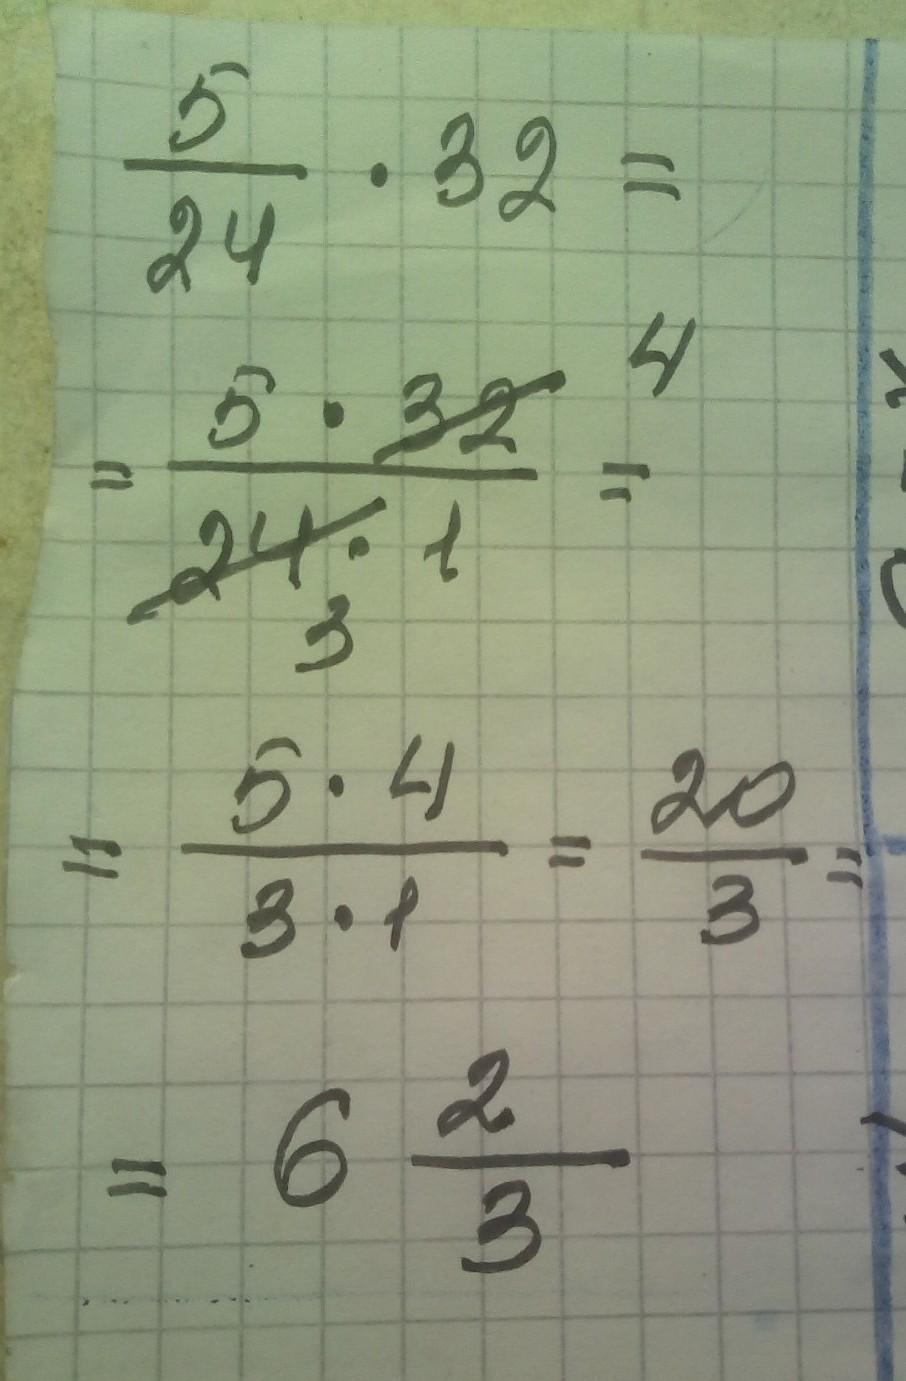 5/24 · 32 =
= 5 · 32 / 24 · 1 = 4
3
= 5 · 4 / 3 · 1 = 20/3 =
= 6 2/3